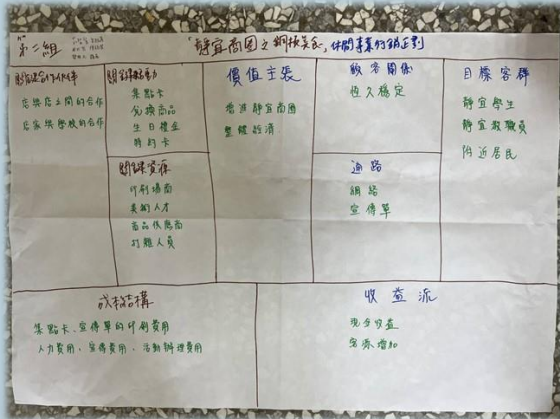 第二組
「靜宜商圈之銅板美食」休閒事業行銷企劃
關鍵合作伙伴
店與店之間的合作
店家與學校的合作
關鍵活動
集點卡
兌換商品
生日禮金
特約卡
關鍵資源
印刷場商
美術人才
商品供應商
打雜人員
價值主張
增進靜宜商圈
整體經濟
顧客關係
恆久穩定
通路
網絡
宣傳單
目標客群
靜宜學生
靜宜教職員
附近居民
成本結構
集點卡、宣傳單的印刷費用
人力費用、宣傳費用、活動辦理費用
收益流
現金收益
客源增加